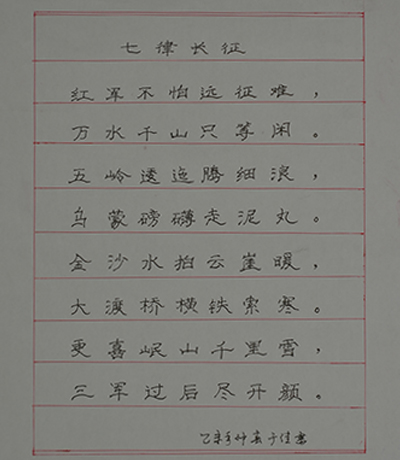 七律长征
红军不怕远征难，
万水千山只等闲。
五岭逶迤腾细浪，
乌蒙磅礴走泥丸。
金沙水拍云崖暖，
大渡桥横铁索寒。
更喜岷山千里雪，
三军过后尽开颜。
乙未